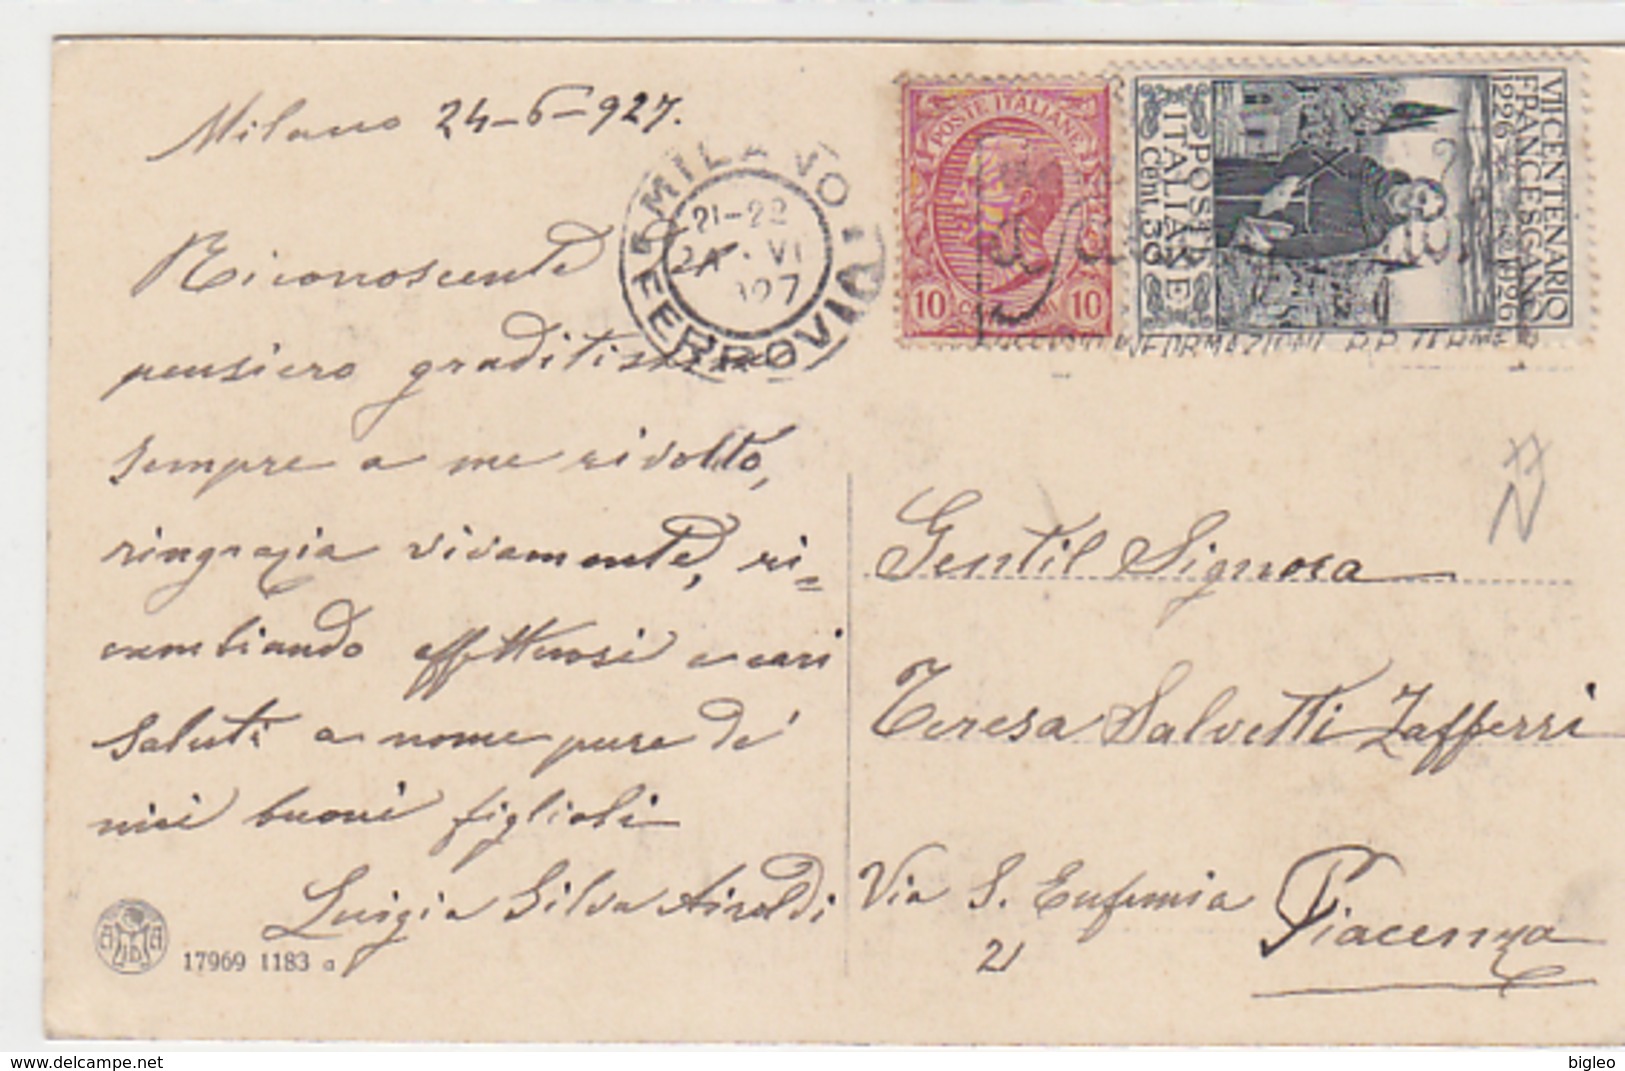 Milano 24-6-927.
Riconoscente
pensiero graditissimo
sempre a me rivolto,
ringrazia vivamente, ri=
cambiando affettuosi e cari
saluti a nome pure de'
miei buoni figlioli
Luigia Silva Airoldi
17969 1183 a
MILANO
FERROVIA
21-22
24 · VI
927
POSTE ITALIANE
10 10
VII CENTENARIO
FRANCESCANO
1226 1926
POSTE
ITALIANE
Cent. 30
INFORMAZIONI
N
Gentil Signora
Teresa Salvetti Zafferri
Via S. Eufemia
21
Piacenza
www.delcampe.net
bigleo